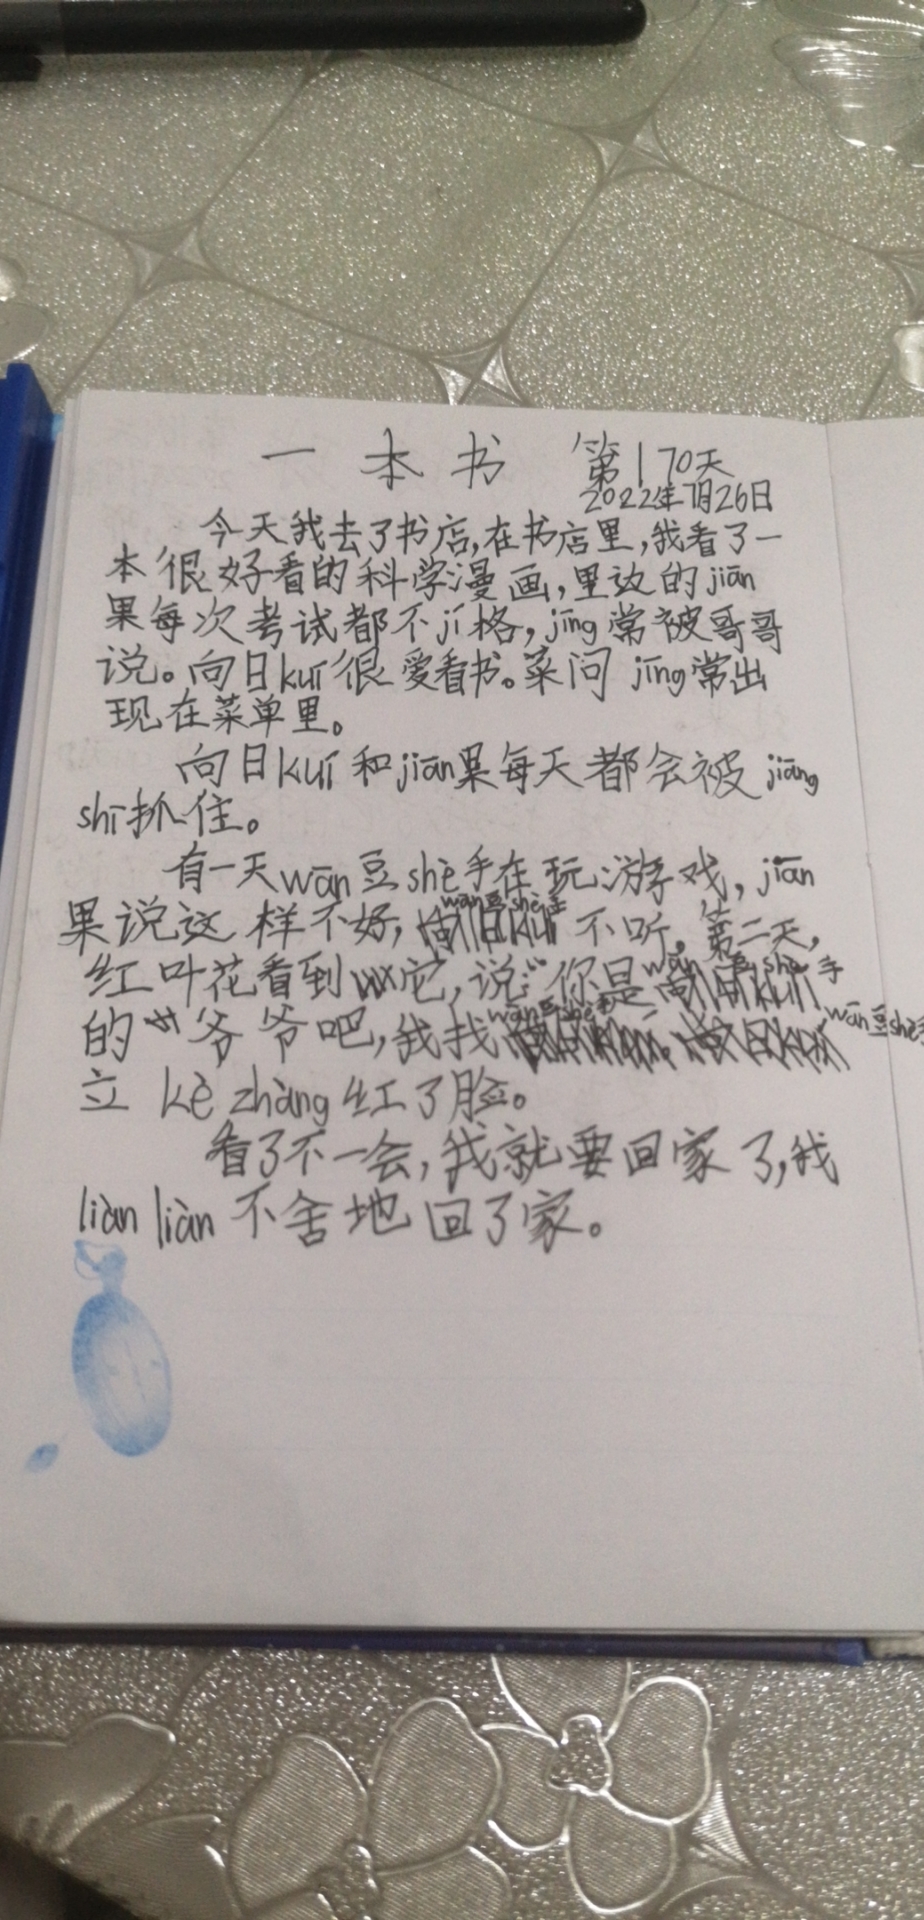 一本书 第170天
2022年7月26日
今天我去了书店,在书店里,我看了一
本很好看的科学漫画,里边的jiān
果每次考试都不jí格,jīng常被哥哥
说。向日kuí很爱看书。菜问jīng常出
现在菜单里。
向日kuí和jiān果每天都会被jiāng
shī抓住。
有一天wān豆shè手在玩游戏,jiān
果说这样不好,wān豆shè手不听。第二天,
红叶花看到它,说:“你是wān豆shè手
的爷爷吧,我找wān豆shè手”wān豆shè手
立kè zhàng红了脸。
看了不一会,我就要回家了,我
liàn liàn不舍地回了家。